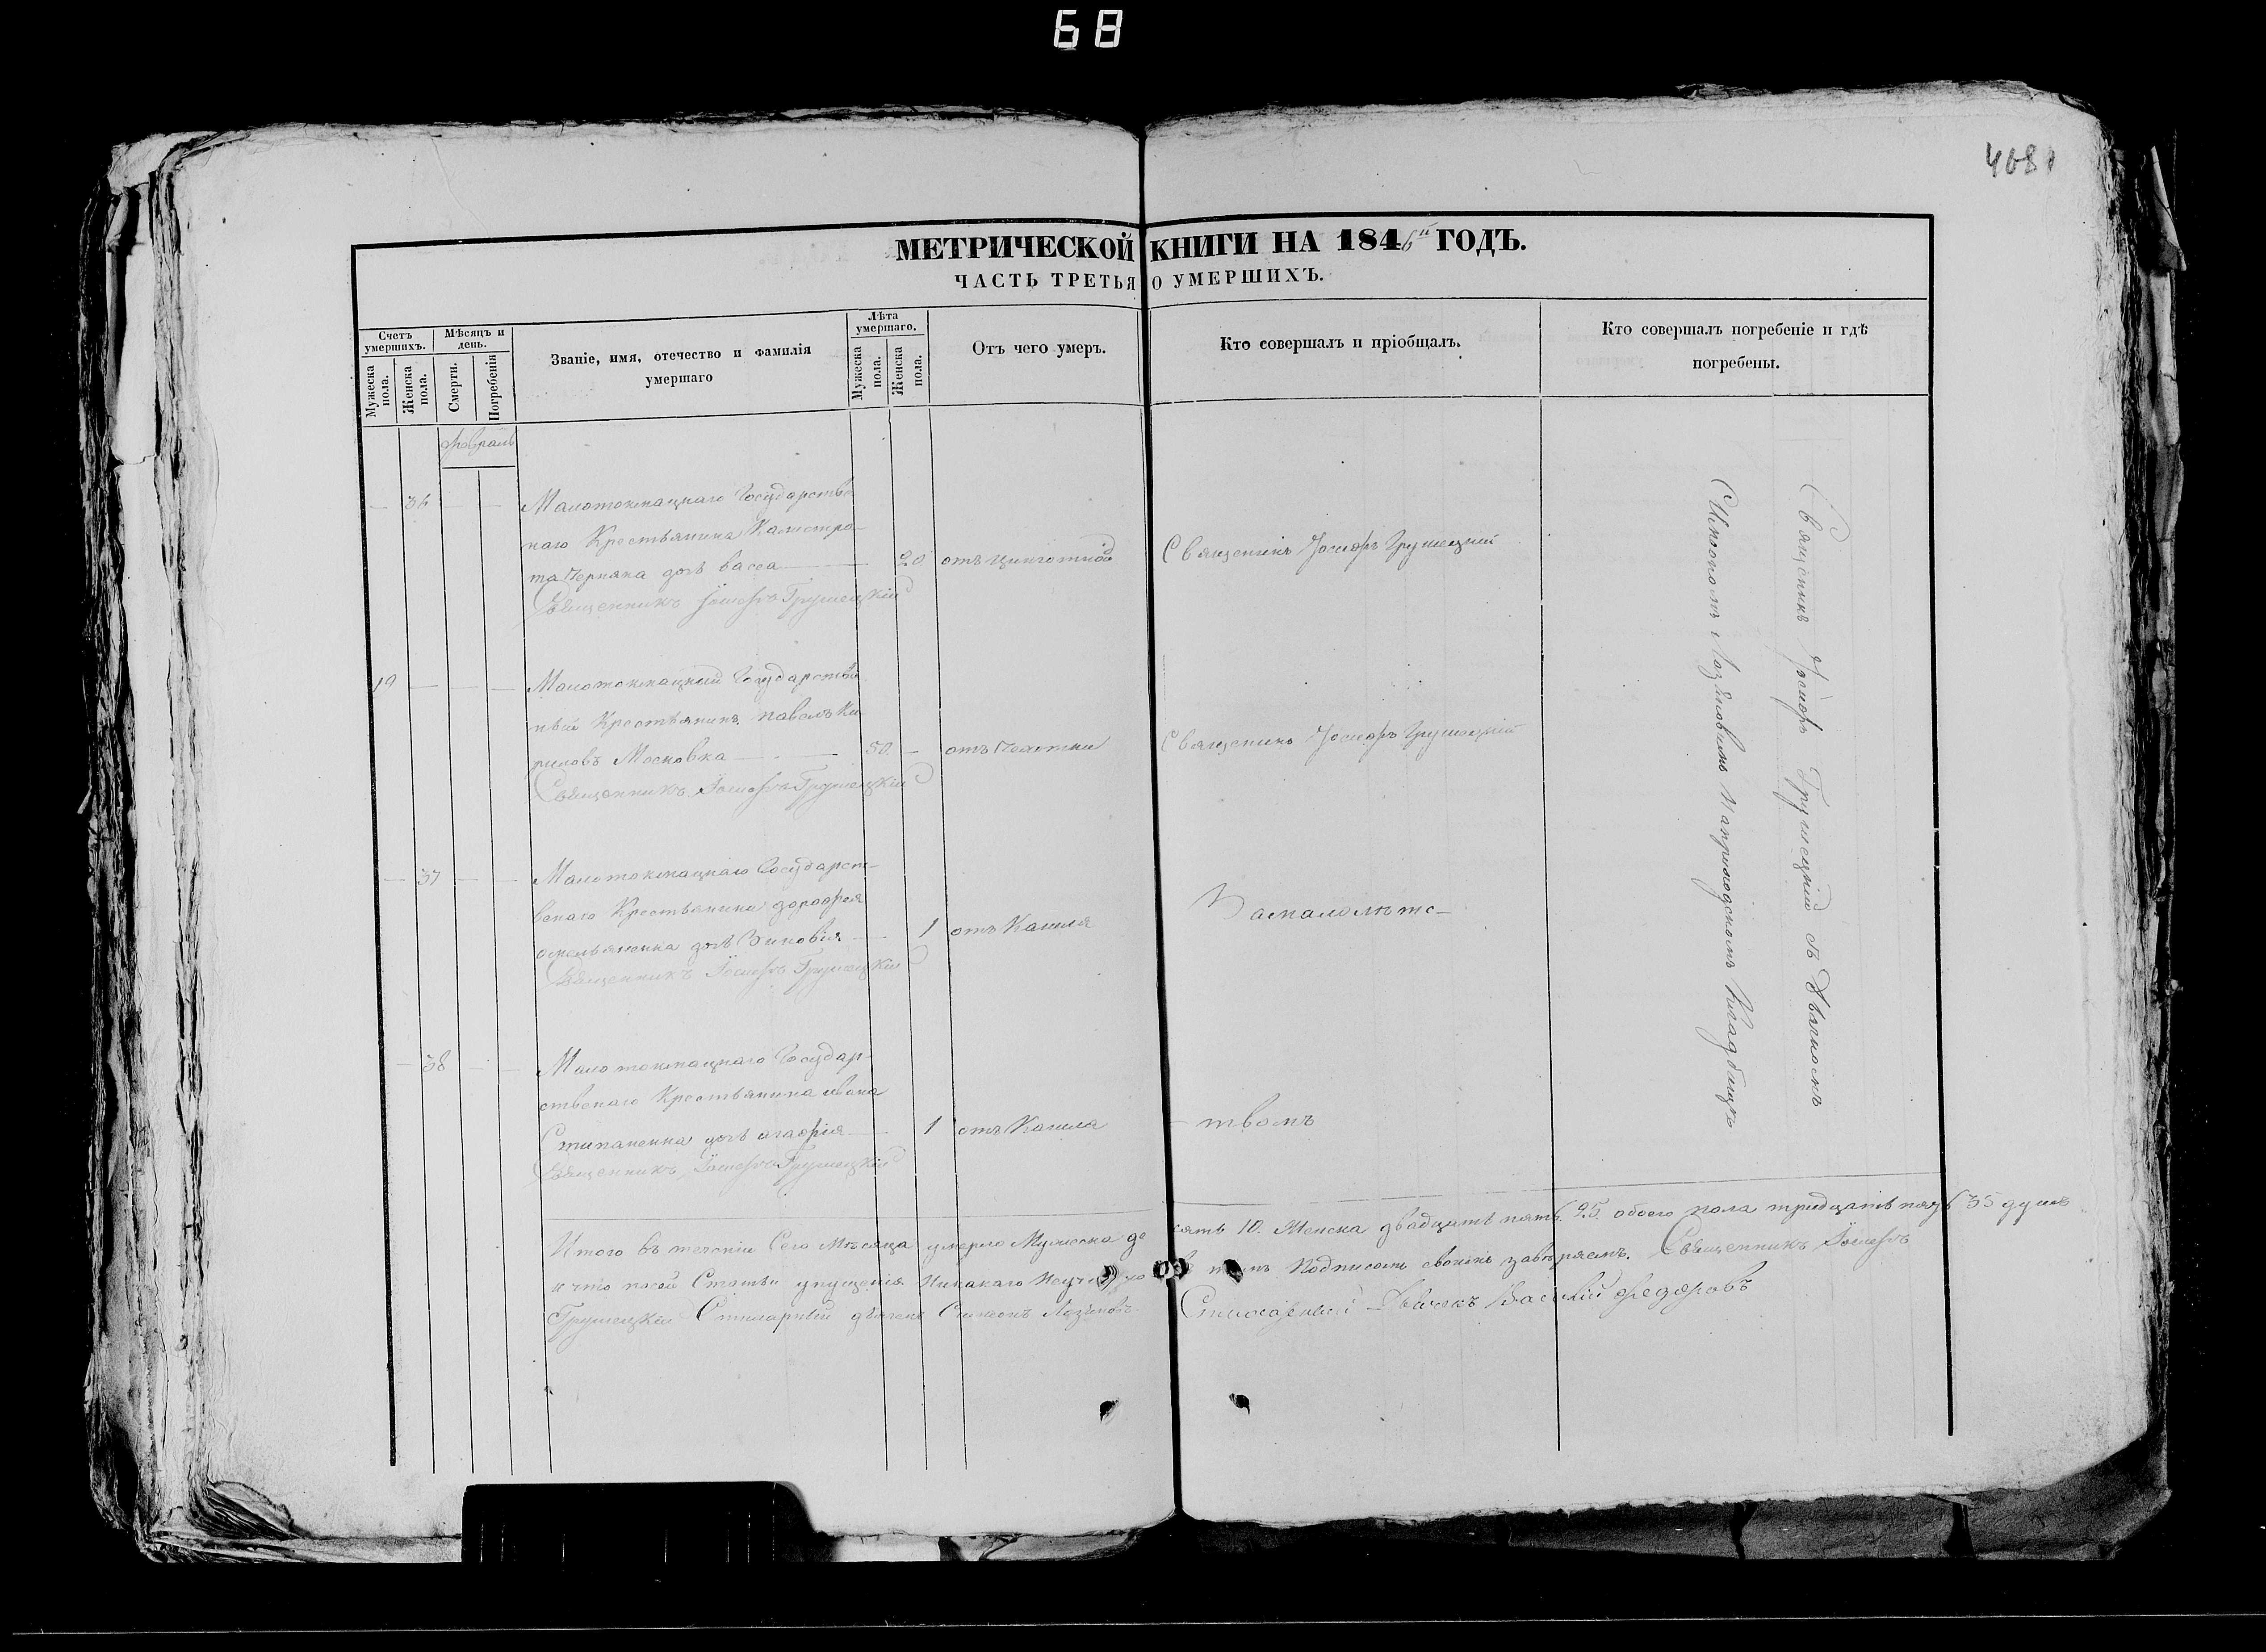 68
4681
МЕТРИЧЕСКОЙ КНИГИ НА 1846й ГОДЪ.
ЧАСТЬ ТРЕТЬЯ О УМЕРШИХЪ.
Счетъ умершихъ.
Мужеска пола.
Женска пола.
Мѣсяцъ и день.
Смерти.
Погребенія
Званіе, имя, отечество и фамилія
умершаго
Лѣта умершаго.
Мужеска пола.
Женска пола.
Отъ чего умеръ.
Кто совершалъ и пріобщалъ.
Кто совершалъ погребеніе и гдѣ
погребены.
Февраль
36 Малотокмацкаго Государстве
наго Крестьянина Калистра-
та Черняка дочь васса 20 отъ цинготной Священникъ Іосифъ Грушецкій
Священникъ Іосифъ Грушецкій
19 Малотокмацкий Государствен
ный Крестьянинъ павелъ Ки
риловъ Московка 50 отъ Чахотки Священникъ Іосифъ Грушецкій
Священникъ Іосифъ Грушецкій
37 Малотокмацкаго Государст-
венаго Крестьянина дорофея
омельяненка дочь Зиновия 1 отъ Кашля Замалолѣтс-
Священникъ Іосифъ Грушецкій
38 Малотокмацкаго Государ-
ственаго Крестьянина ивана
Стипаненка дочь агафія 1 отъ Кашля твомъ
Священникъ Іосифъ Грушецкій
Священникъ Іосифъ Грушецкій съ Дьячкомъ
Симеономъ Лозѣновымъ Наприходскомъ Кладбищѣ
Итого въ теченіи Сего Мѣсяца умерло Мужеска десять 10. Женска двадцать пять 25. обоего пола тридцать пять 35 душъ
и что посей Статьи упущенія Никакаго Неучинено въ томъ Подписомъ своимъ завѣряемъ. Священникъ Іосифъ
Грушецкій Стихарный дьячекъ Симеонъ Лозѣновъ Стихарный Дьячекъ Василій Федоровъ